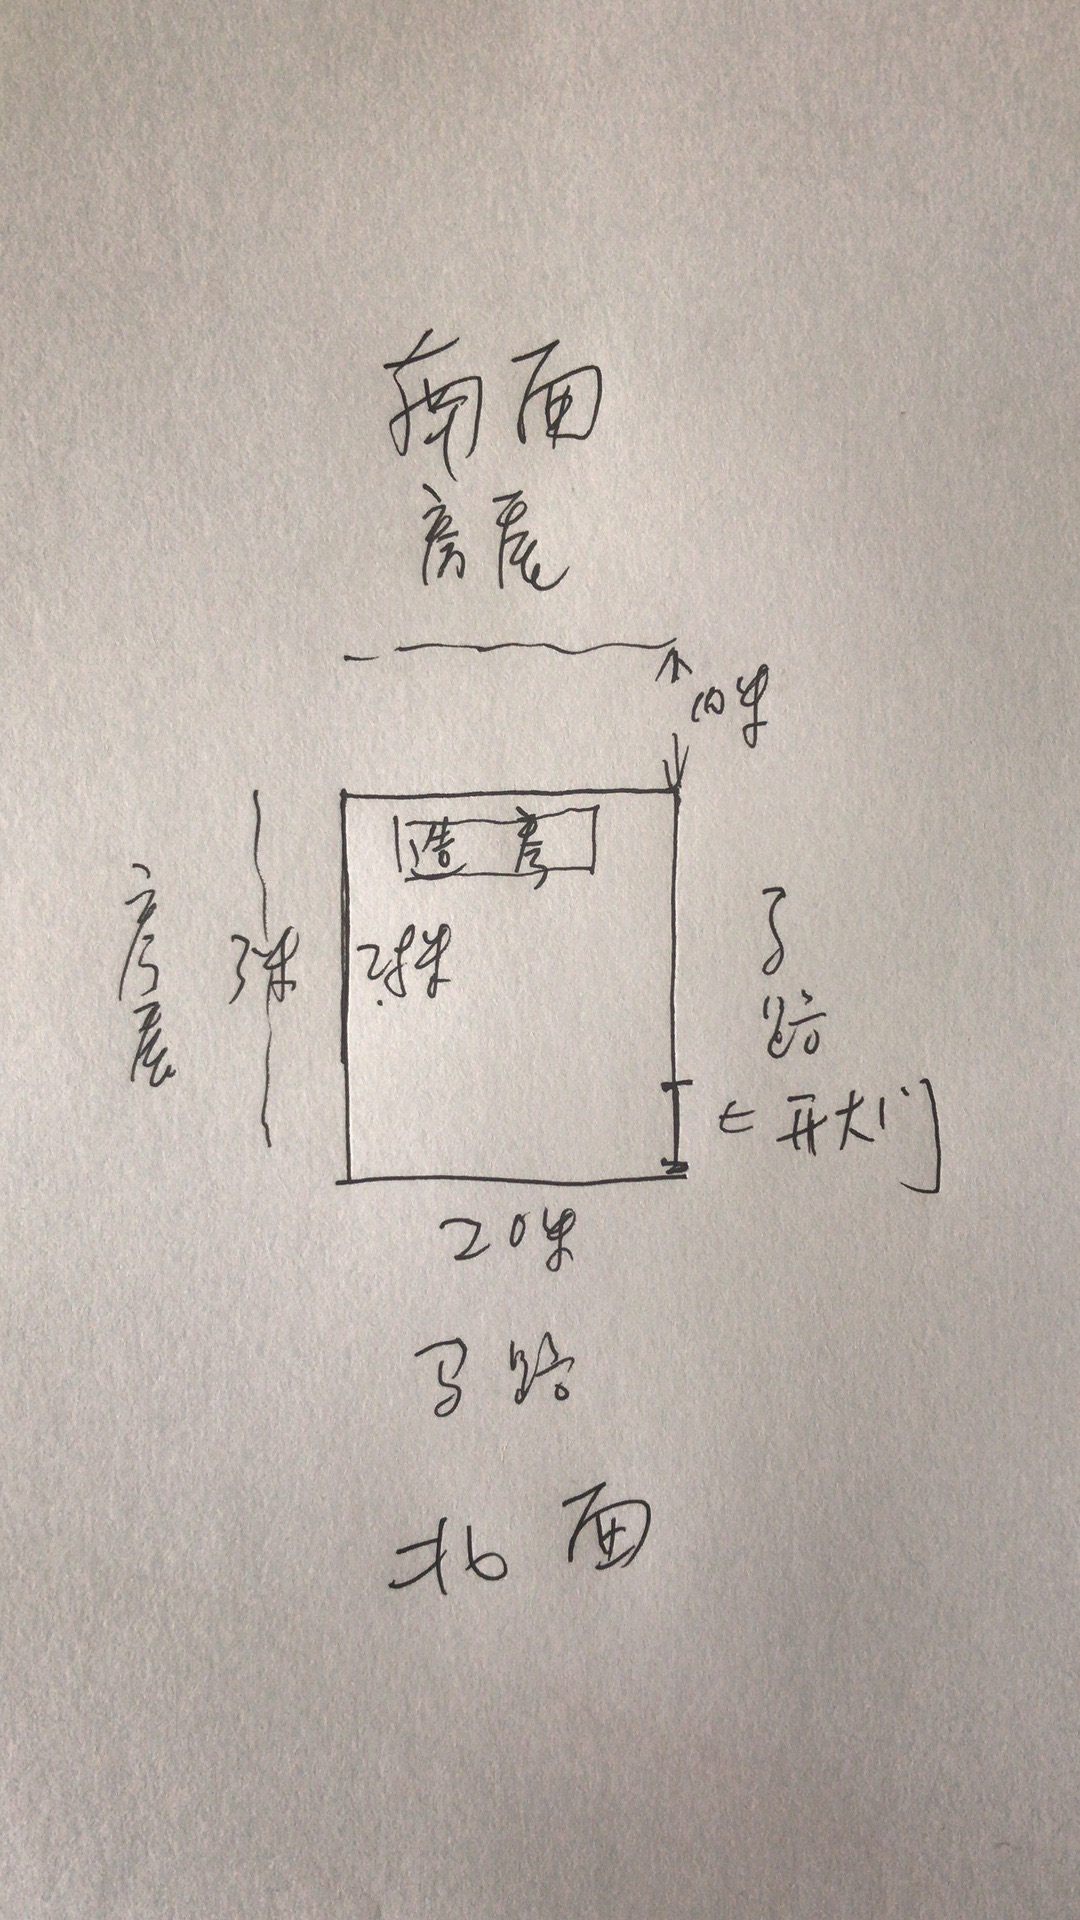 南面
房屋
10米
造房
房屋
3米
马
路
←开大门
20米
马路
北面